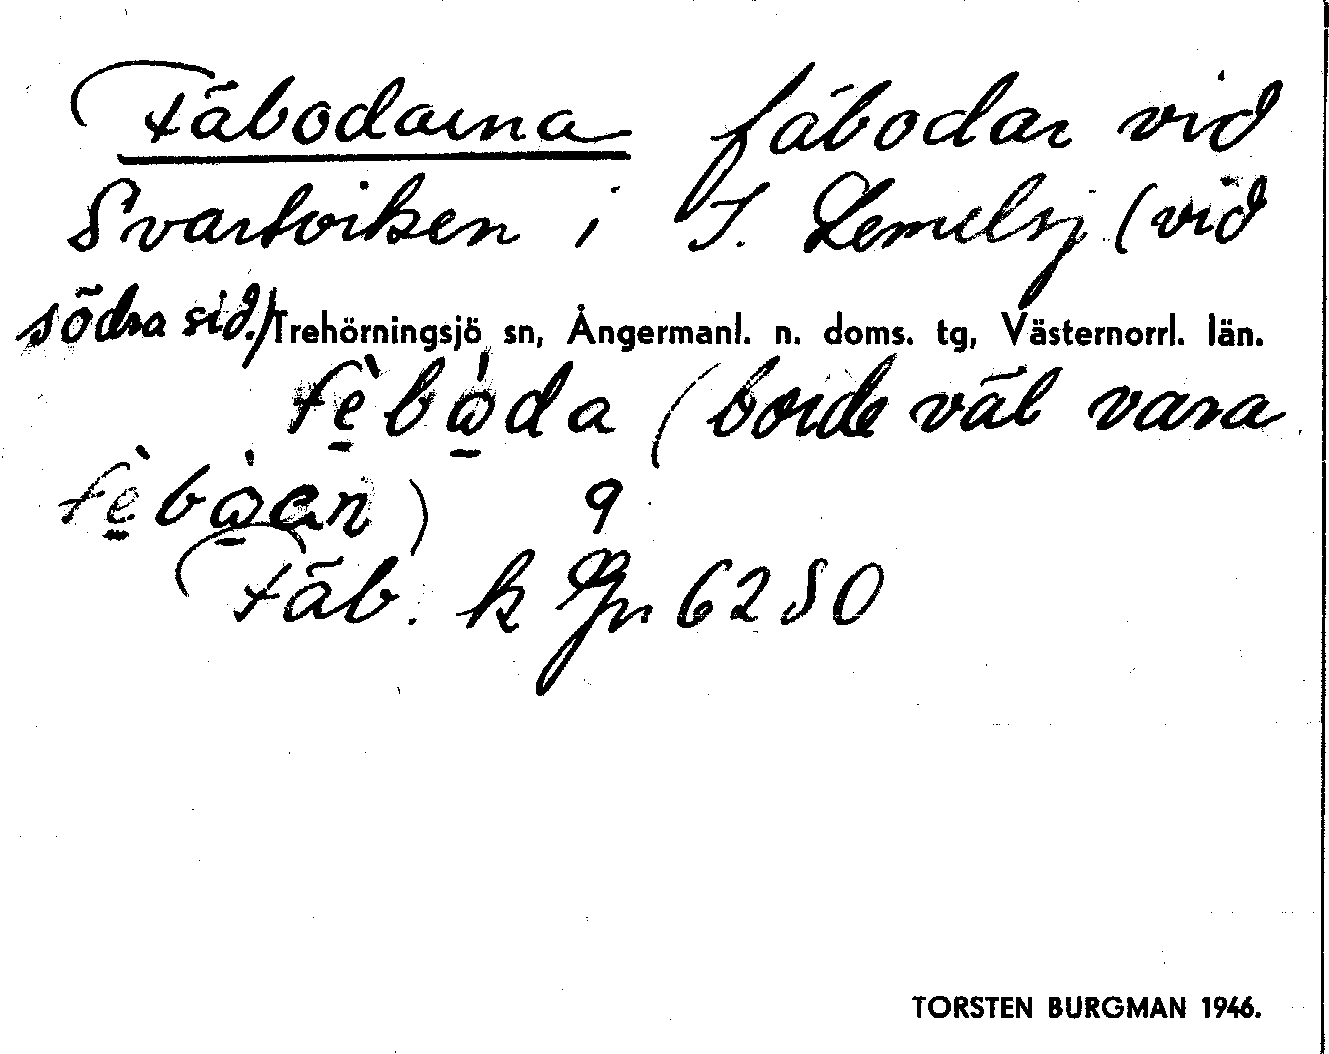 Fäbodarna fäbodar vid
Svartviken i S. Lemelsj (vid
södra sid.) Trehörningsjö sn, Ångermanl. n. doms. tg, Västernorrl. län.
fè̱bò̱da (borde väl vara
fè̱bò̱an) 9
Fäb. k Gn 6280
TORSTEN BURGMAN 1946.